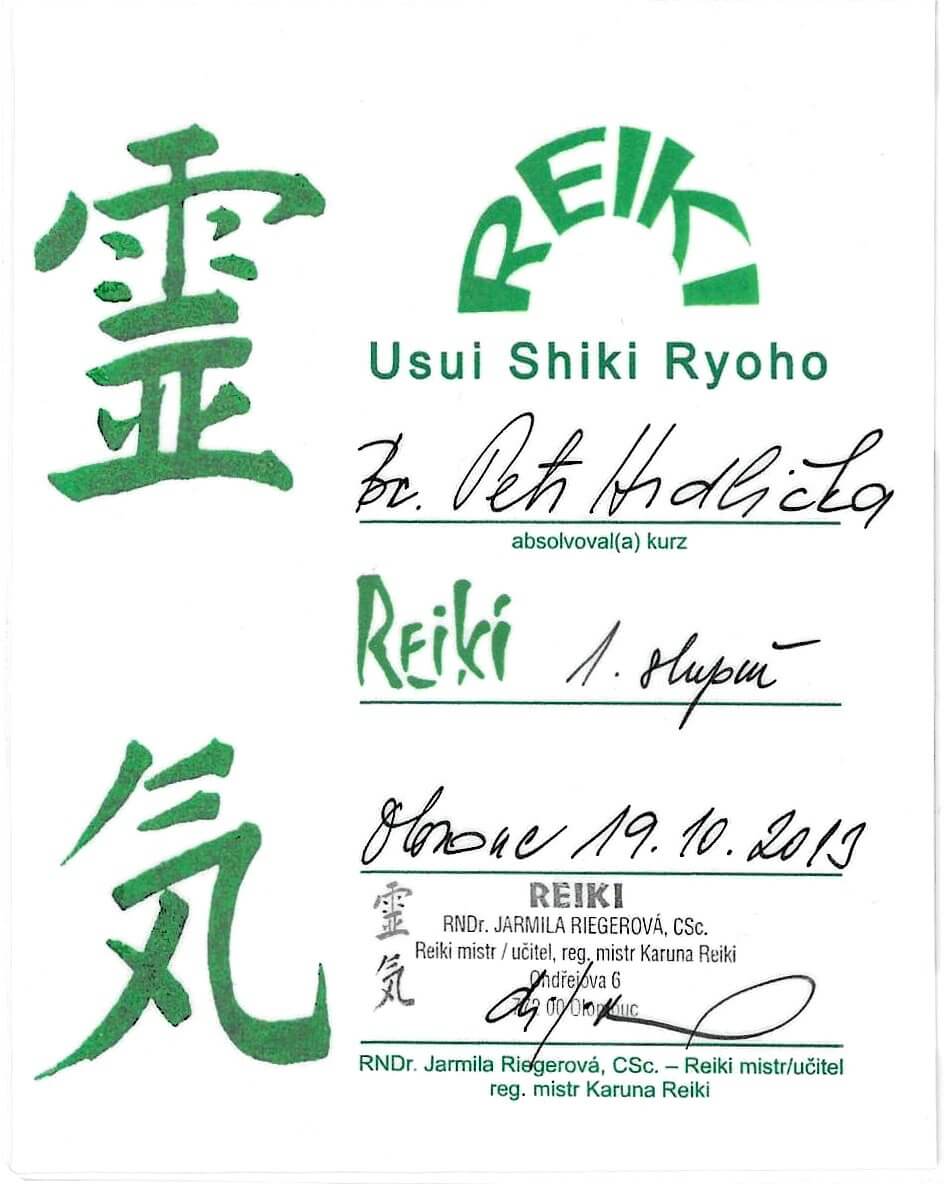 靈気
REIKI
Usui Shiki Ryoho
Bc. Petr Hrdlička
absolvoval(a) kurz
Reiki 1. stupeň
Olomouc 19.10.2013
靈気
REIKI
RNDr. JARMILA RIEGEROVÁ, CSc.
Reiki mistr / učitel, reg. mistr Karuna Reiki
Ondřejova 6
772 00 Olomouc
RNDr. Jarmila Riegerová, CSc. – Reiki mistr/učitel
reg. mistr Karuna Reiki